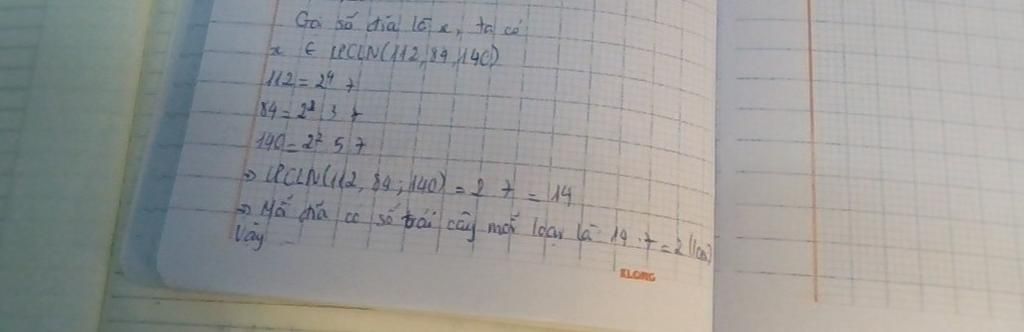 Gọi số đĩa là x, ta có
x ∈ ƯCLN(112, 84, 140)
112 = 2⁴ 7
84 = 2² 3 7
140 = 2² 5 7
⇒ ƯCLN(112, 84, 140) = 2 7 = 14
⇒ Mỗi đĩa có số trái cây mỗi loại là: 14 : 7 = 2
Vậy
KLONG